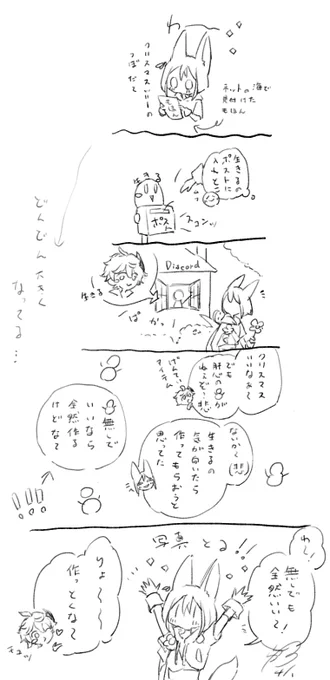 わ〜
クリスマスいいーの
つぼだて
ネットの海で
見付けた
もほん
生きるの
ポストに
入れと
こ
生きる
ポスト
スコンッ
Discord
生きる
ぱかっ
クリスマス
いいなぁて
でも
肝心の
が
ねぇぞ…悲
げんてい
アイテム
ないかぁ(悲)
生きるの
気が向いたら
作ってもらおうと
思ってた
無しで
いいなら
全然作る
けどなて
どんどん大きく
なってる…
!!!
わ〜!
無しでも
全然いい〜!
写真とる!!
りょ〜〜〜
作っとくなて